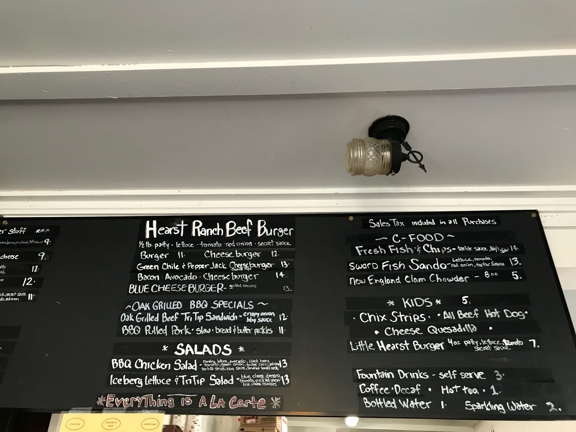 er stuff
9.
9.
12.
11.
12.
11.
Hearst Ranch Beef Burger
1/2 lb. patty · lettuce · tomato · red onion · secret sauce
Burger 11. Cheeseburger 12.
Green Chile & Pepper Jack Cheeseburger 13.
Bacon Avocado · Cheeseburger 14.
BLUE CHEESE BURGER · grilled onions 13.
~ OAK GRILLED BBQ SPECIALS ~
Oak Grilled Beef Tri Tip Sandwich · crispy onion bbq sauce 12.
BBQ Pulled Pork · slaw · bread & butter pickles 11.
* SALADS *
BBQ Chicken Salad 13
Iceberg Lettuce & Tri Tip Salad 13
*Everything is A La Carte*
Sales Tax included in all Purchases
~ C-FOOD ~
Fresh Fish & Chips · tartar sauce 14.
Sword Fish Sando · lettuce, tomato, red onion, tartar sauce 13.
New England Clam Chowder - 8oz 5.
* KIDS * 5.
· Chix Strips · · All Beef Hot Dog ·
· Cheese Quesadilla ·
Little Hearst Burger 4oz patty, lettuce, tomato secret sauce 7.
Fountain Drinks · self serve 3.
Coffee · Decaf · Hot tea · 2.
Bottled Water 1. Sparkling Water 2.